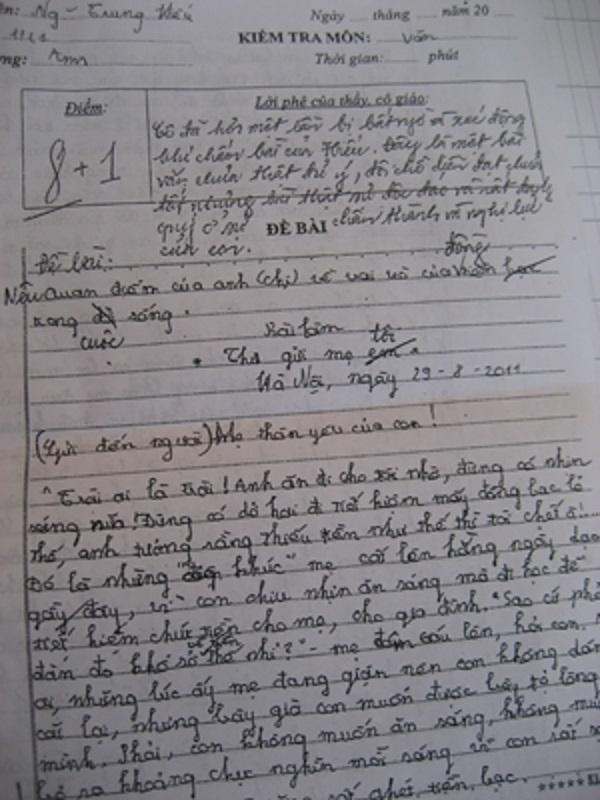 ên: Ng - Trung Hiếu Ngày tháng năm 20
11 KIỂM TRA MÔN: Văn
ng: Am Thời gian: phút
Điểm: Lời phê của thầy, cô giáo:
8 + 1
Cô đã hơn một lần bị bất ngờ và xúc động
khi chấm bài của Hiếu. Đây là một bài
văn chưa thật đủ ý, đôi chỗ dẫn dắt chưa
tốt nhưng bài thật mà độc đáo và rất
quý ở sự chân thành và nghị lực
của con.
ĐỀ BÀI
Đề bài: đồng
Nêu quan điểm của anh (chị) về vai trò của tiền bạc
trong đời sống.
cuộc
Bài làm
Thư gửi mẹ em. tôi
Hà Nội, ngày 29-8-2011
(Gửi đến người) Mẹ thân yêu của con!
"Trời ơi là trời! Anh ăn đi cho tôi nhờ, đừng có nhịn
sáng nữa! Đừng có dở hơi đi tiết kiệm mấy đồng bạc lẻ
thế, anh tưởng rằng thiếu tiền như thế thì tôi chết à!...
Đó là những khúc" mẹ cất lên hằng ngày dạo
gần đây, vì con chịu nhịn ăn sáng mà đi học để
tiết kiệm chút tiền cho mẹ, cho gia đình. "Sao cứ phải
dằn đo khổ sở thế nhỉ?" - mẹ cáu lên, hỏi con.
ai, những lúc ấy mẹ đang giận nên con không dám
cãi lại, nhưng bây giờ con muốn được bày tỏ lòng
mình. Phải, con không muốn ăn sáng, không
bỏ ra khoảng chục nghìn mỗi sáng vì con rất
ghét tiền bạc.